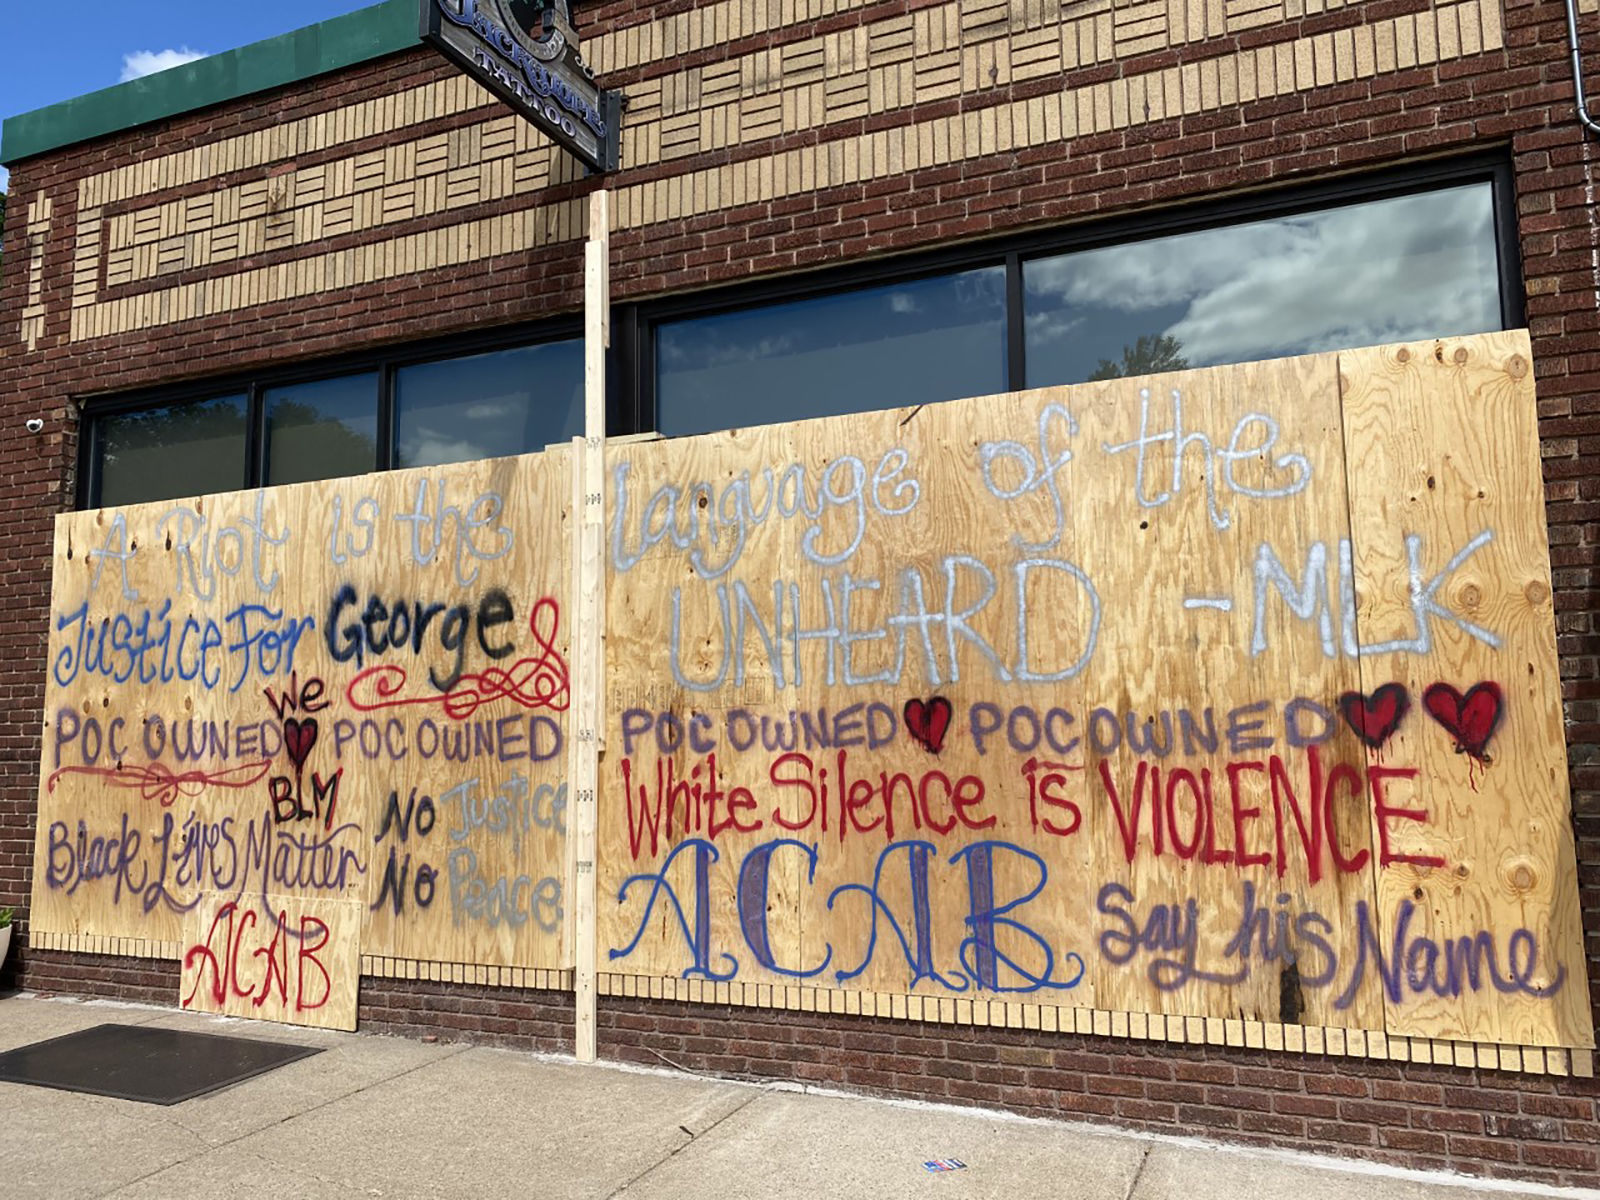 JACKALOPE
TATTOO
A Riot is the language of the
UNHEARD - MLK
Justice For George
POC OWNED POC OWNED POC OWNED POC OWNED
we
BLM
White Silence is VIOLENCE
Black Lives Matter
No Justice
No Peace
ACAB
ACAB
Say his Name